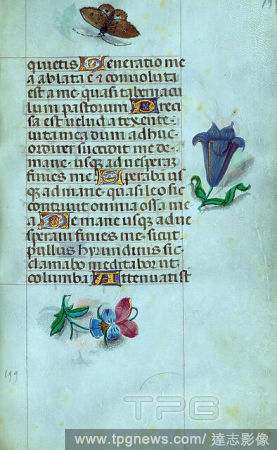 199
quietis Generatio me
a ablata e͂ ⁊ convoluta
est a me quasi tabernac
ulum pastorum Preci
sa est velud a texente
vita mea dum adhuc
ordirer succidit me de
mane usq3 ad vesperam
finies me Sperabam us
q3 ad mane quasi leo sic
contrivit omnia ossa me
a De mane usq3 ad ve
speram finies me sicut
pullus hyrundinis sic
clamabo meditabor ut
columba Attenuati st
199
TPG
www.tpgnews.com / 達志影像